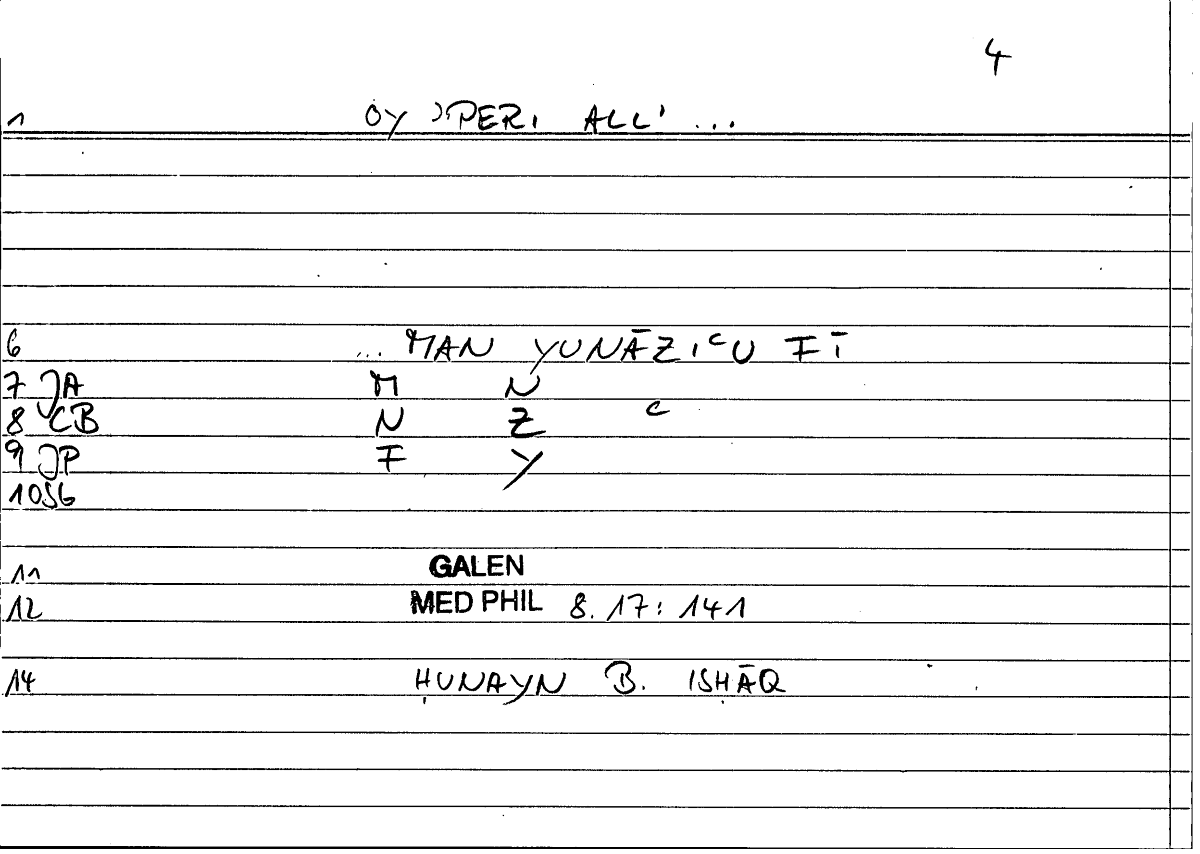 4
1 OY PERI ALL' ...
6 ... MAN YUNĀZIʿU FĪ
7 JA M N
8 CB N Z ʿ
9 JP F Y
10SG
11 GALEN
12 MED PHIL 8.17:141
14 ḤUNAYN B. ISḤĀQ